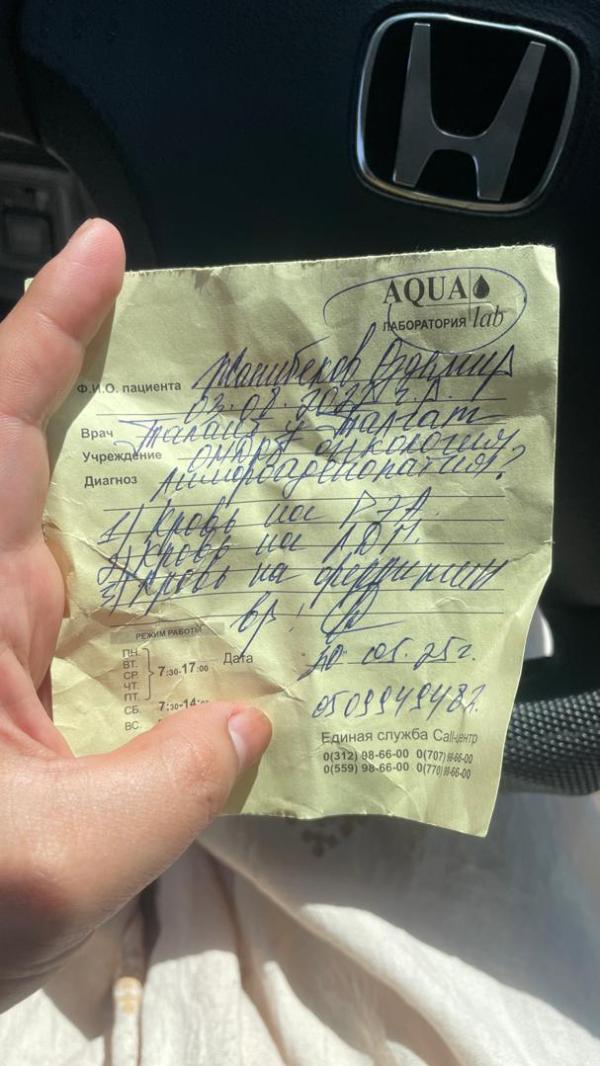 AQUA
ЛАБОРАТОРИЯ lab
Ф.И.О. пациента Жаныбеков
03.08. г.р.
Врач Талант у
Учреждение онкология
Диагноз лимфоаденопатия?
1) Кровь на РЭА.
2) Кровь на ЛДГ.
3) Кровь на ферритин
вр:
РЕЖИМ РАБОТЫ
ПН.
ВТ.
СР. 7:30-17:00
ЧТ.
ПТ.
СБ.
ВС.
Дата 30.05.25г.
Единая служба Call-центр
0(312) 98-66-00 0(707) 98-66-00
0(559) 98-66-00 0(770) 98-66-00